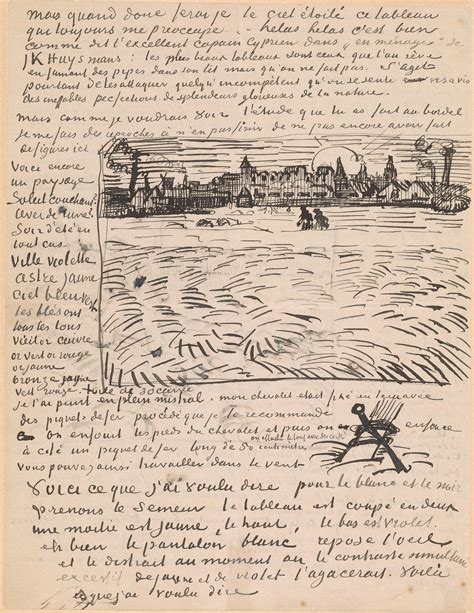 mais quand donc ferai je le ciel étoilé ce tableau
qui toujours me préoccupe – helas helas c'est bien
comme dit l'excellent copain Cyprien dans "en ménage" de
J K Huysmans : les plus beaux tableaux sont ceux que l'on rêve
en fumant des pipes dans son lit mais qu'on ne fait pas. S'agit
pourtant de les attaquer quelqu'incompétent qu'on se sente vis a vis
des ineffables perfections de splendeurs glorieuses de la nature.
Mais comme je voudrais voir l'étude que tu as fait au bordel
Je me fais des reproches à n'en pas finir de ne pas encore avoir fait
de figures ici
Voici encore
un paysage
Soleil couchant?
lever de lune?
Soir d'été en
tout cas.
Ville violette
astre jaune
Ciel bleu vert
les blés ont
tous les tons
vieil or cuivre
or vert or rouge
or jaune
bronze jaune
vert rouge toile de 30 carrée
je l'ai peint en plein mistral. mon chevalet était fixé en terre avec
des piquets de fer procédé que je te recommande
on enfonce les pieds du chevalet et puis on enfonce
à côté un piquet de fer long de 50 centimètres
on attache le tout avec des cordes
Vous pouvez ainsi travailler dans le vent
Voici ce que j'ai voulu dire pour le blanc et le noir
prenons le Semeur le tableau est coupé en deux
une moitié est jaune, le haut, le bas est violet.
eh bien le pantalon blanc repose l'oeil
et le distrait au moment où le contraste simultané
excessif de jaune et de violet l'agacerait. Voilà
ce que j'ai voulu dire